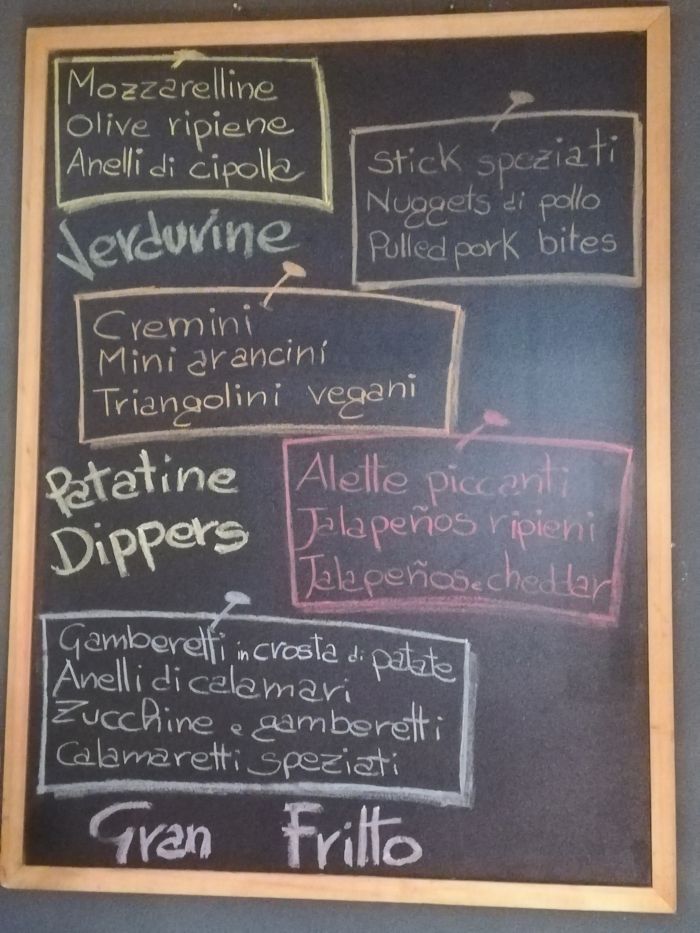 Mozzarelline
Olive ripiene
Anelli di cipolla
Stick speziati
Nuggets di pollo
Pulled pork bites
Verduvine
Cremini
Mini arancini
Triangolini vegani
Patatine
Dippers
Alette piccanti
Jalapeños ripieni
Jalapeños e cheddar
Gamberetti in crosta di patate
Anelli di calamari
Zucchine e gamberetti
Calamaretti speziati
Gran Fritto